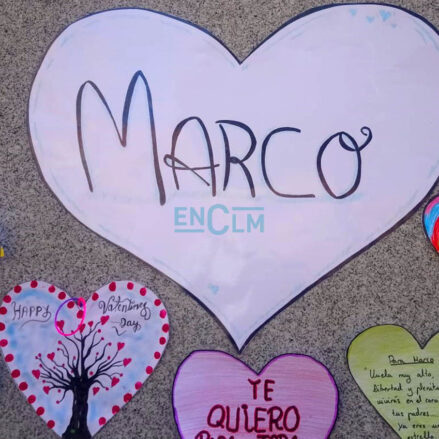 MARCO
ENCLM
HAPPY
Valentines
Day
TE
QUIERO
Para Marco
Vuela muy alto,
libertad y plenit
vivirás en el cora
tus padres
ya eres un